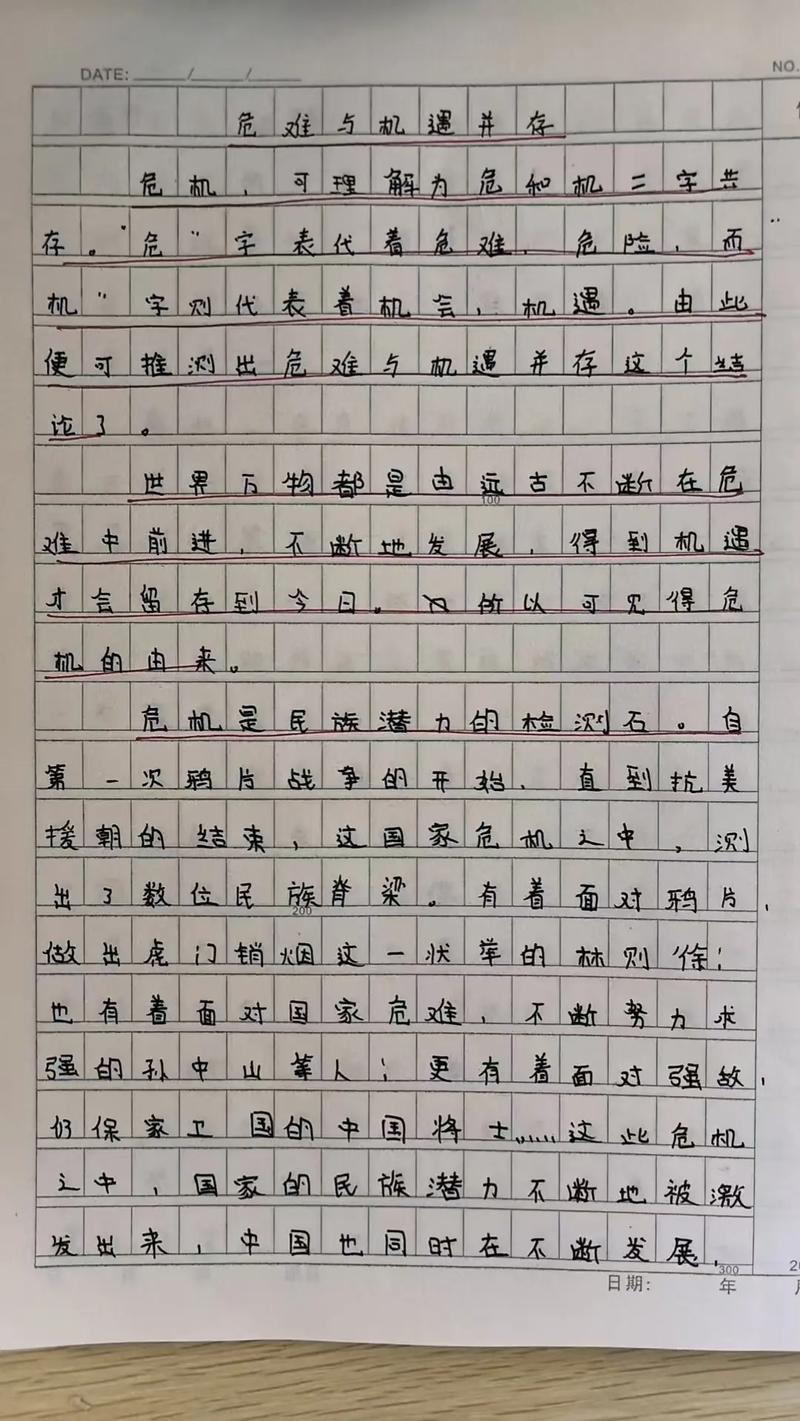 DATE: ____/____/____
NO.
危难与机遇并存
危机，可理解为危和机二字共
存。“危”字表代着危难、危险，而
机”字则代表着机会，机遇。由此
便可推测出危难与机遇并存这个结
论了。
世界万物都是由远古不断在危
100
难中前进，不断地发展，得到机遇
才会留存到今日。所以可见得危
机的由来。
危机是民族潜力的检测石。自
第一次鸦片战争的开始，直到抗美
援朝的结束，这国家危机之中，测
出了数位民族脊梁。有着面对鸦片，
200
做出虎门销烟这一状举的林则徐；
也有着面对国家危难，不断努力求
强的孙中山等人；更有着面对强敌，
仍保家卫国的中国将士……这此危机
之中，国家的民族潜力不断地被激
发出来，中国也同时在不断发展，
300
日期： 年 月